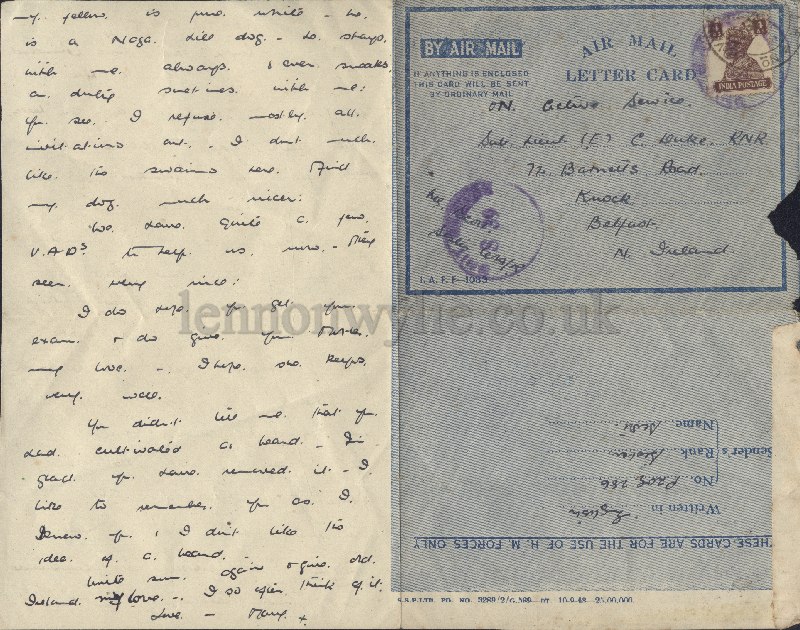 my fellow. is pure white - he.
is a Naga. hill dog. - he stays.
with me. always. & even sneaks.
on duty sometimes. with me:
You see. I refuse. mostly. all.
invitations out. - I don't much.
like the swains here. Find
my dog. much nicer:
We have. quite a few.
V.A.Ds to help us. now. - They
seem. very nice:
I do hope you get your
exam. & do give. your Mother.
my love. - I hope. she keeps.
very well.
You didn't tell me. that you
had cultivated a beard. - I'm
glad you have removed it. - I
like to remember. you as. I.
knew. you, & I don't like the
idea. of a. beard.
Write soon. again & give. old.
Ireland. my love. - I so often think of it.
Love. - Mary. x
BY AIR MAIL
AIR MAIL
LETTER CARD
IF ANYTHING IS ENCLOSED
THIS CARD WILL BE SENT
BY ORDINARY MAIL
INDIA POSTAGE
On. Active Service.
Sub. Lieut (E) C. Duke. RNR
74. Barnetts Road.
Knock
Belfast.
N. Ireland.
I.A.F.F. 1083
lennonwylie.co.uk
THESE CARDS ARE FOR THE USE OF H. M. FORCES ONLY
Written in English
No.
Sender's Rank Sister
Name
S.S.P. LTD. PD. NO. 3289/2/G.589 DT. 10-9-43 25,00,000.